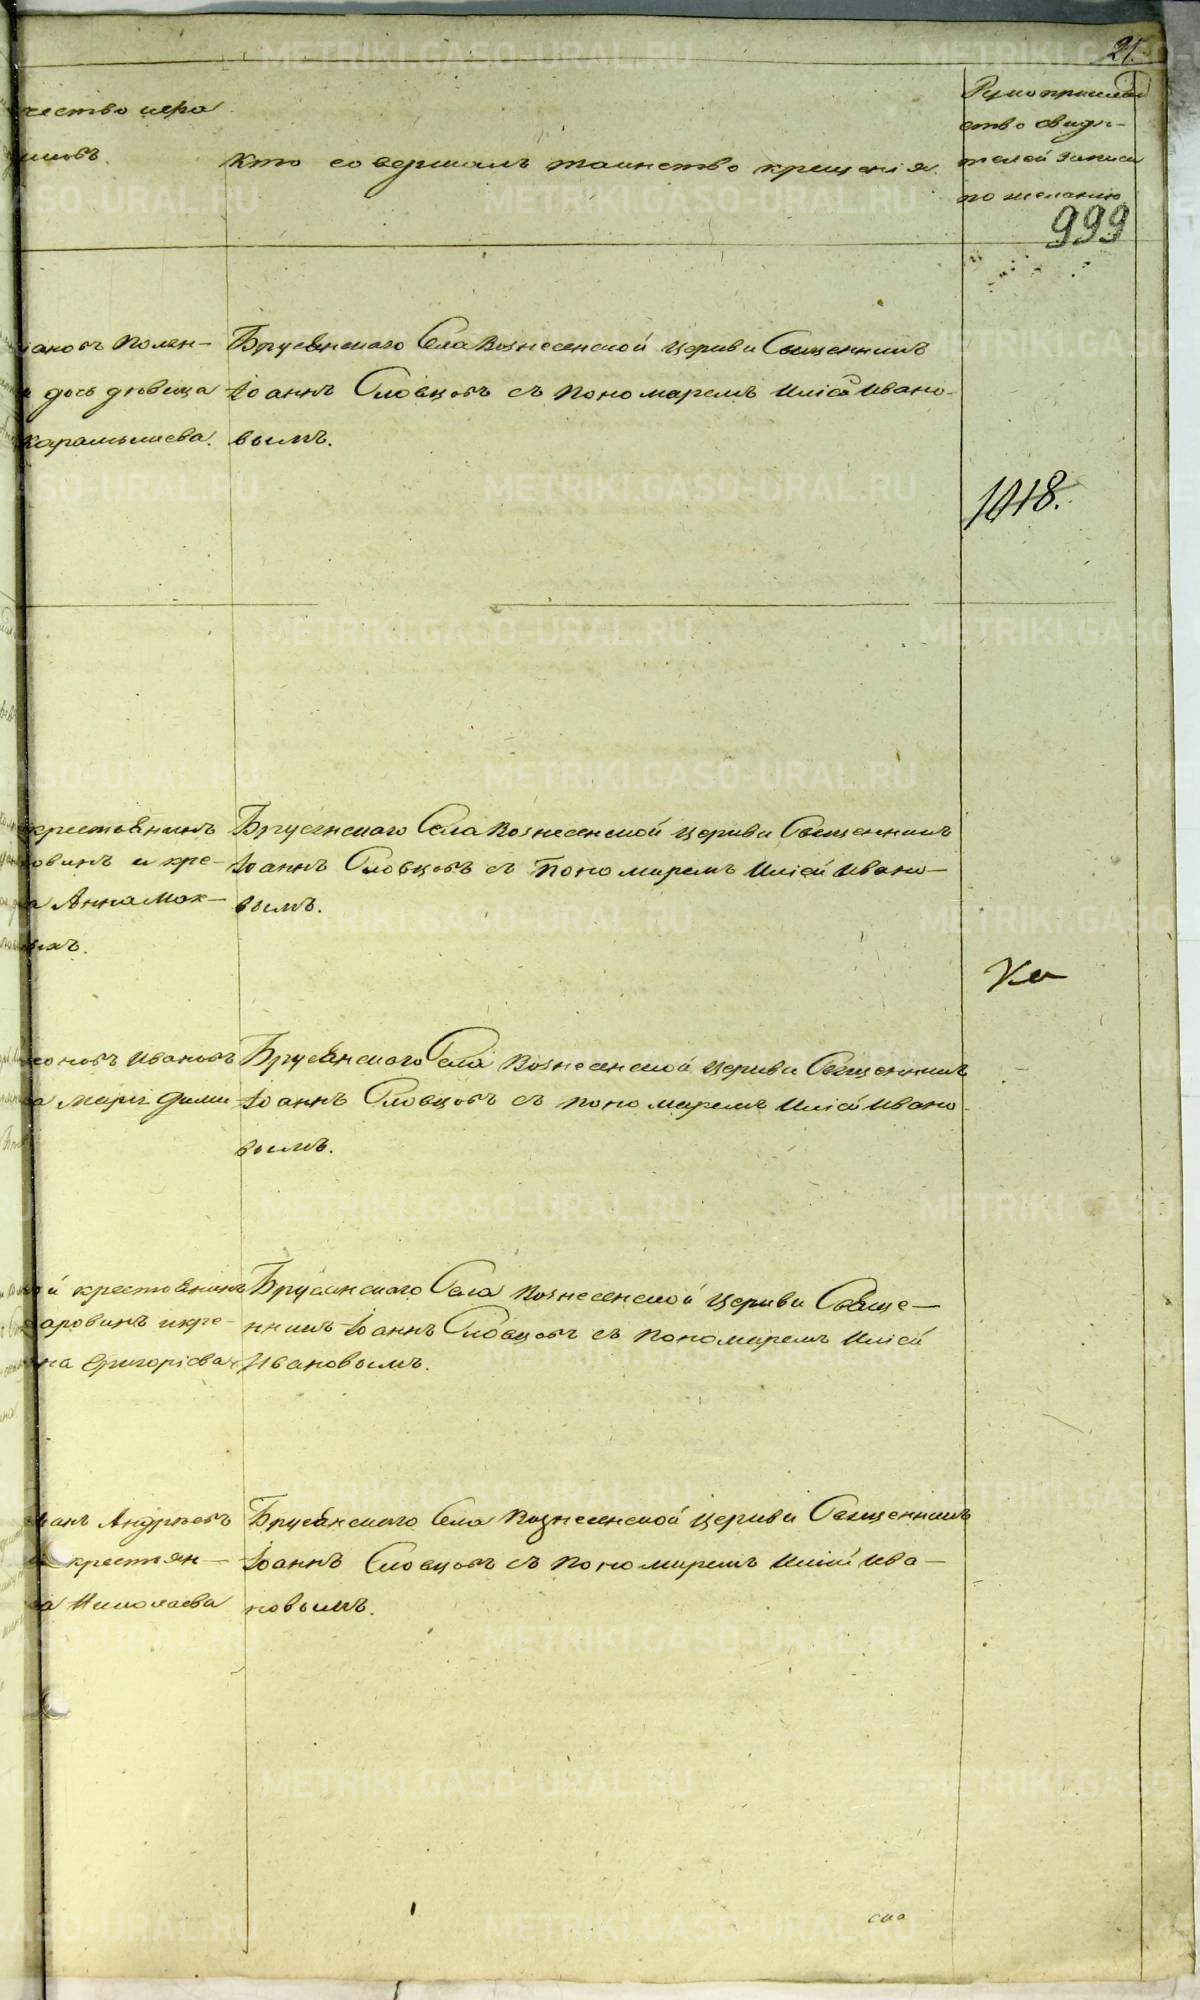 21.
чество испо
никовъ.
Кто совершалъ таинство крещенія.
Рукоприклад
ство свидѣ-
телей записи
по желанію
999
ановъ Полен-
дось дѣвица
Карамышева.
Брусянскаго Села Вознесенской церкви Священникъ
Іоаннъ Словцовъ съ пономаремъ Иліей Ивано-
вымъ.
1018.
крестьянинъ
овинъ и кре-
а Анна Мох-
ыхъ.
Брусянскаго Села Вознесенской церкви Священникъ
Іоаннъ Словцовъ съ пономаремъ Иліей Ивано-
вымъ.
соновъ Ивановъ
а Марія Дими
Брусянскаго Села Вознесенской церкви Священникъ
Іоаннъ Словцовъ съ пономаремъ Иліей Ивано-
вымъ.
й крестьянинъ
аровинъ и кре-
на Григоріева
Брусянскаго Села Вознесенской церкви Свяще-
нникъ Іоаннъ Словцовъ съ пономаремъ Иліей
Ивановымъ.
анъ Андреевъ
крестьян-
а Николаева
Брусянскаго Села Вознесенской церкви Священникъ
Іоаннъ Словцовъ съ пономаремъ Иліей Ива-
новымъ.
METRIKI.GASO-URAL.RU